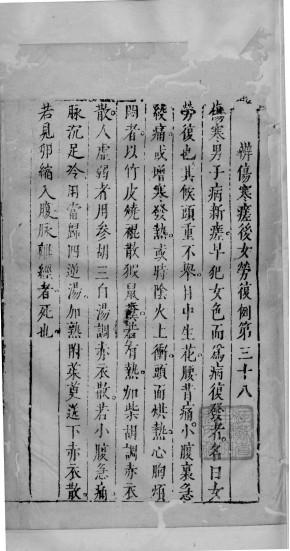 辨傷寒瘥後女勞復例第三十八
傷寒男子病新瘥早犯女色而為病復發者名曰女
勞復也其候頭重不舉目中生花腰背痛小腹裏急
絞痛或增寒發熱或時陰火上衝頭面烘熱心胸煩
悶者以竹皮燒裩散猳鼠若有熱加柴胡調赤衣
散人虛弱者用参胡三白湯調赤衣散若小腹急痛
脉沉足冷用當歸四逆湯加熟附茱萸送下赤衣散
若見卵縮入腹脉離經者死也